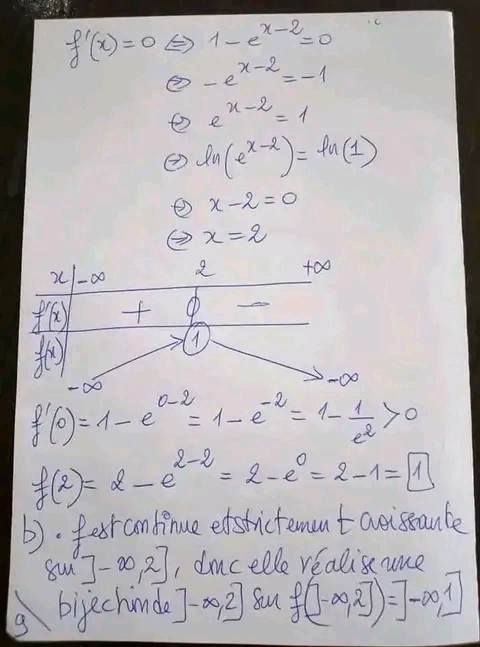 f'(x) = 0 ⇔ 1 - e^{x-2} = 0
⇔ -e^{x-2} = -1
⇔ e^{x-2} = 1
⇔ ln(e^{x-2}) = ln(1)
⇔ x - 2 = 0
⇔ x = 2
x | -∞ 2 +∞
f'(x) | + 0 -
f(x) | 1
-∞ -∞
f'(0) = 1 - e^{0-2} = 1 - e^{-2} = 1 - 1/e^2 > 0
f(2) = 2 - e^{2-2} = 2 - e^0 = 2 - 1 = 1
b) • f est continue et strictement croissante
sur ]-∞, 2], donc elle réalise une
bijection de ]-∞, 2] sur f(]-∞, 2]) = ]-∞, 1]
9